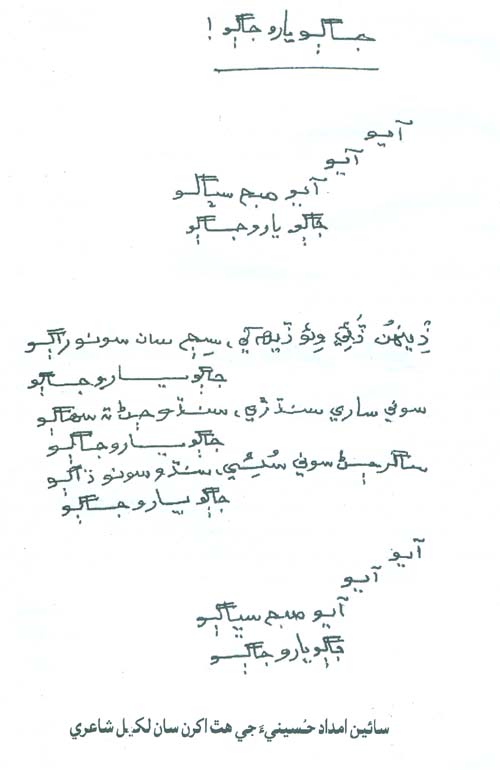 جاڳو يارو جاڳو !
آيو
آيو
آيو صبح سڀاڳو
جاڳو يارو جاڳو
ڏينهن ڏيهه کي، سِج سان سونو راڳو
جاڳو يارو جاڳو
سوني ساري سنڌڙي، سنڌو ڄڻ تہ سهاڳو
جاڳو يارو جاڳو
ساگر ڄڻ سوني سُئي، سنڌو سونو ڌاڳو
جاڳو يارو جاڳو
آيو
آيو
آيو صبح سڀاڳو
جاڳو يارو جاڳو
سائين امداد حُسينيءَ جي هٿ اکرن سان لکيل شاعري